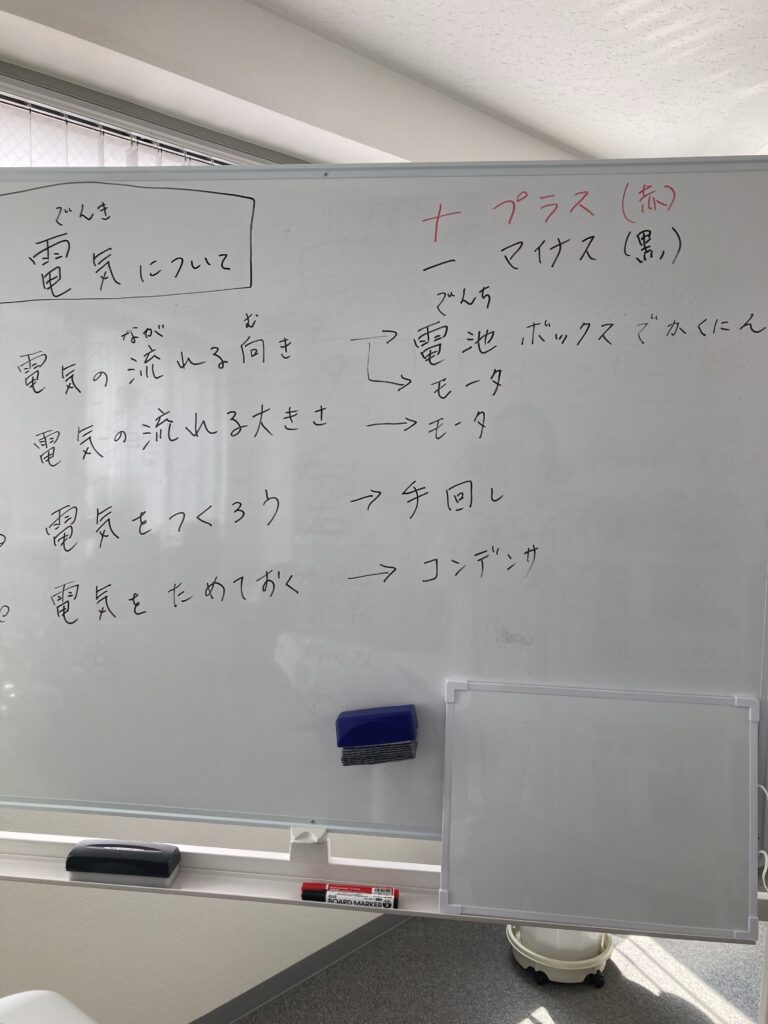 でんき
電気について
+ プラス(赤)
- マイナス(黒)
なが む
電気の流れる向き → でんち
電池ボックスでかくにん
→ モータ
電気の流れる大きさ → モータ
電気をつくろう → 手回し
電気をためておく → コンデンサ
BOARD MARKER